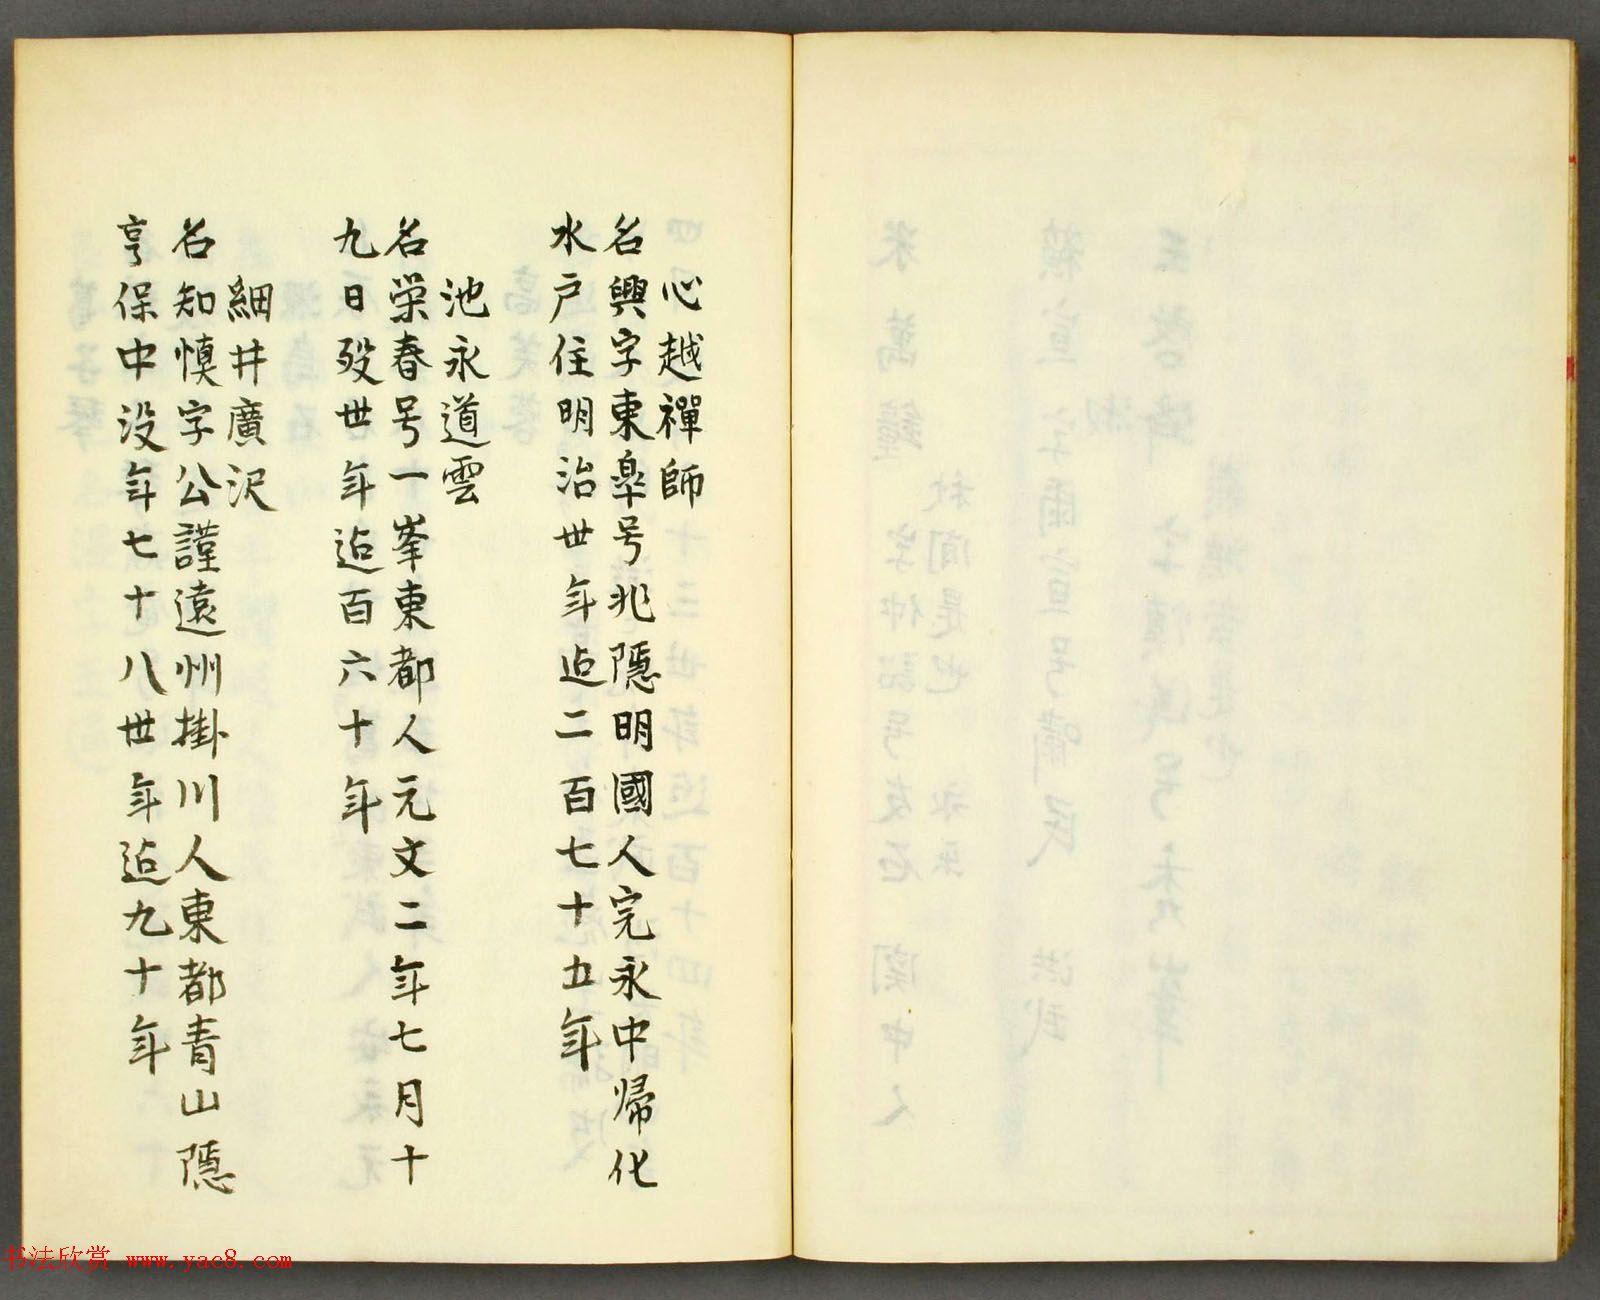 心越禪師
名興字東皐号兆隱明國人完永中歸化
水戶住明治丗年迠二百七十五年
池永道雲
名榮春号一峯東都人元文二年七月十
九日歿丗年迠百六十年
細井廣沢
名知慎字公謹遠州掛川人東都青山隱
享保中没年七十八丗年迠九十年
书法欣赏 www.yac8.com